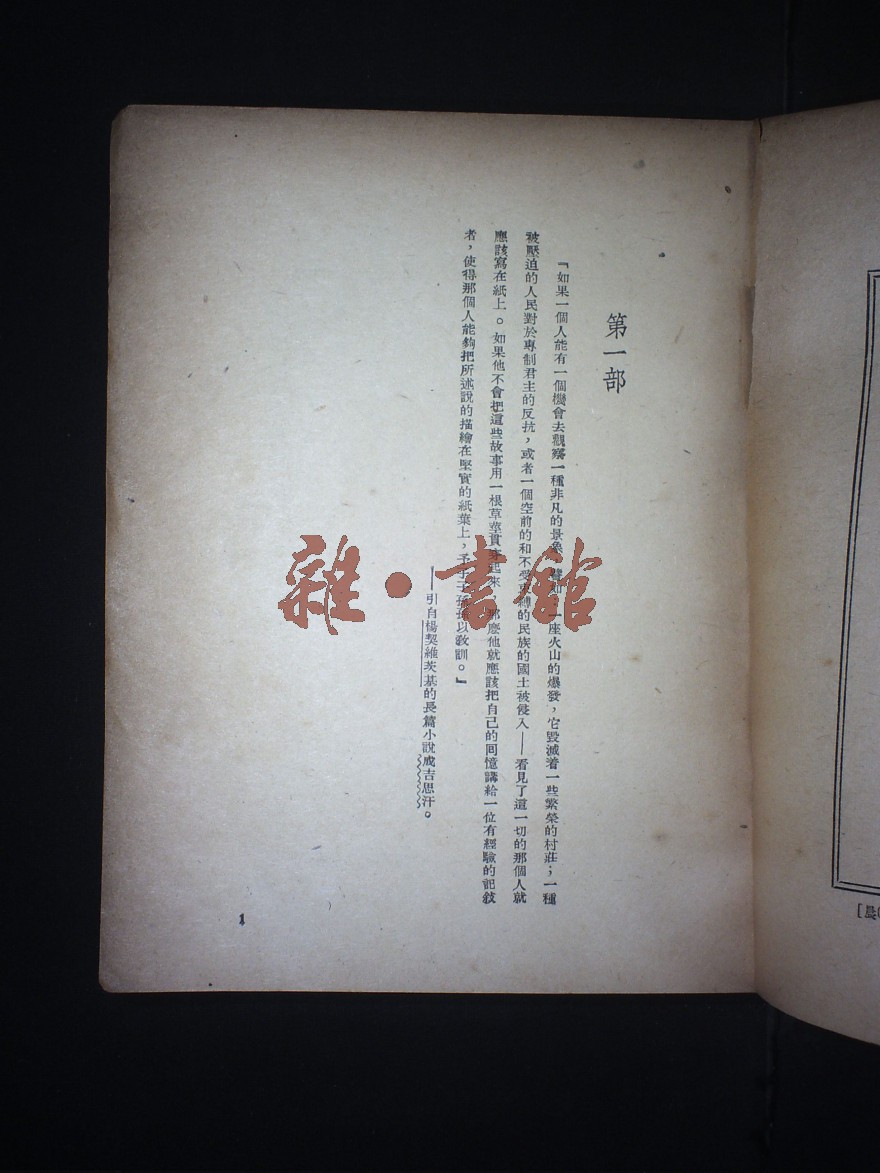 第一部
「如果一個人能有一個機會去觀察一種非凡的景象，譬如，一座火山的爆發，它毀滅着一些繁榮的村莊；一種
被壓迫的人民對於專制君主的反抗，或者一個空前的和不受束縛的民族的國土被侵入——看見了這一切的那個人就
應該寫在紙上。如果他不會把這些故事用一根草莖貫穿起來，那麽他就應該把自己的囘憶講給一位有經驗的記敍
者，使得那個人能夠把所述說的描繪在堅實的紙葉上，予子子孫孫以敎訓。」
——引自楊契維茨基的長篇小說成吉思汗。
1
雜·書館